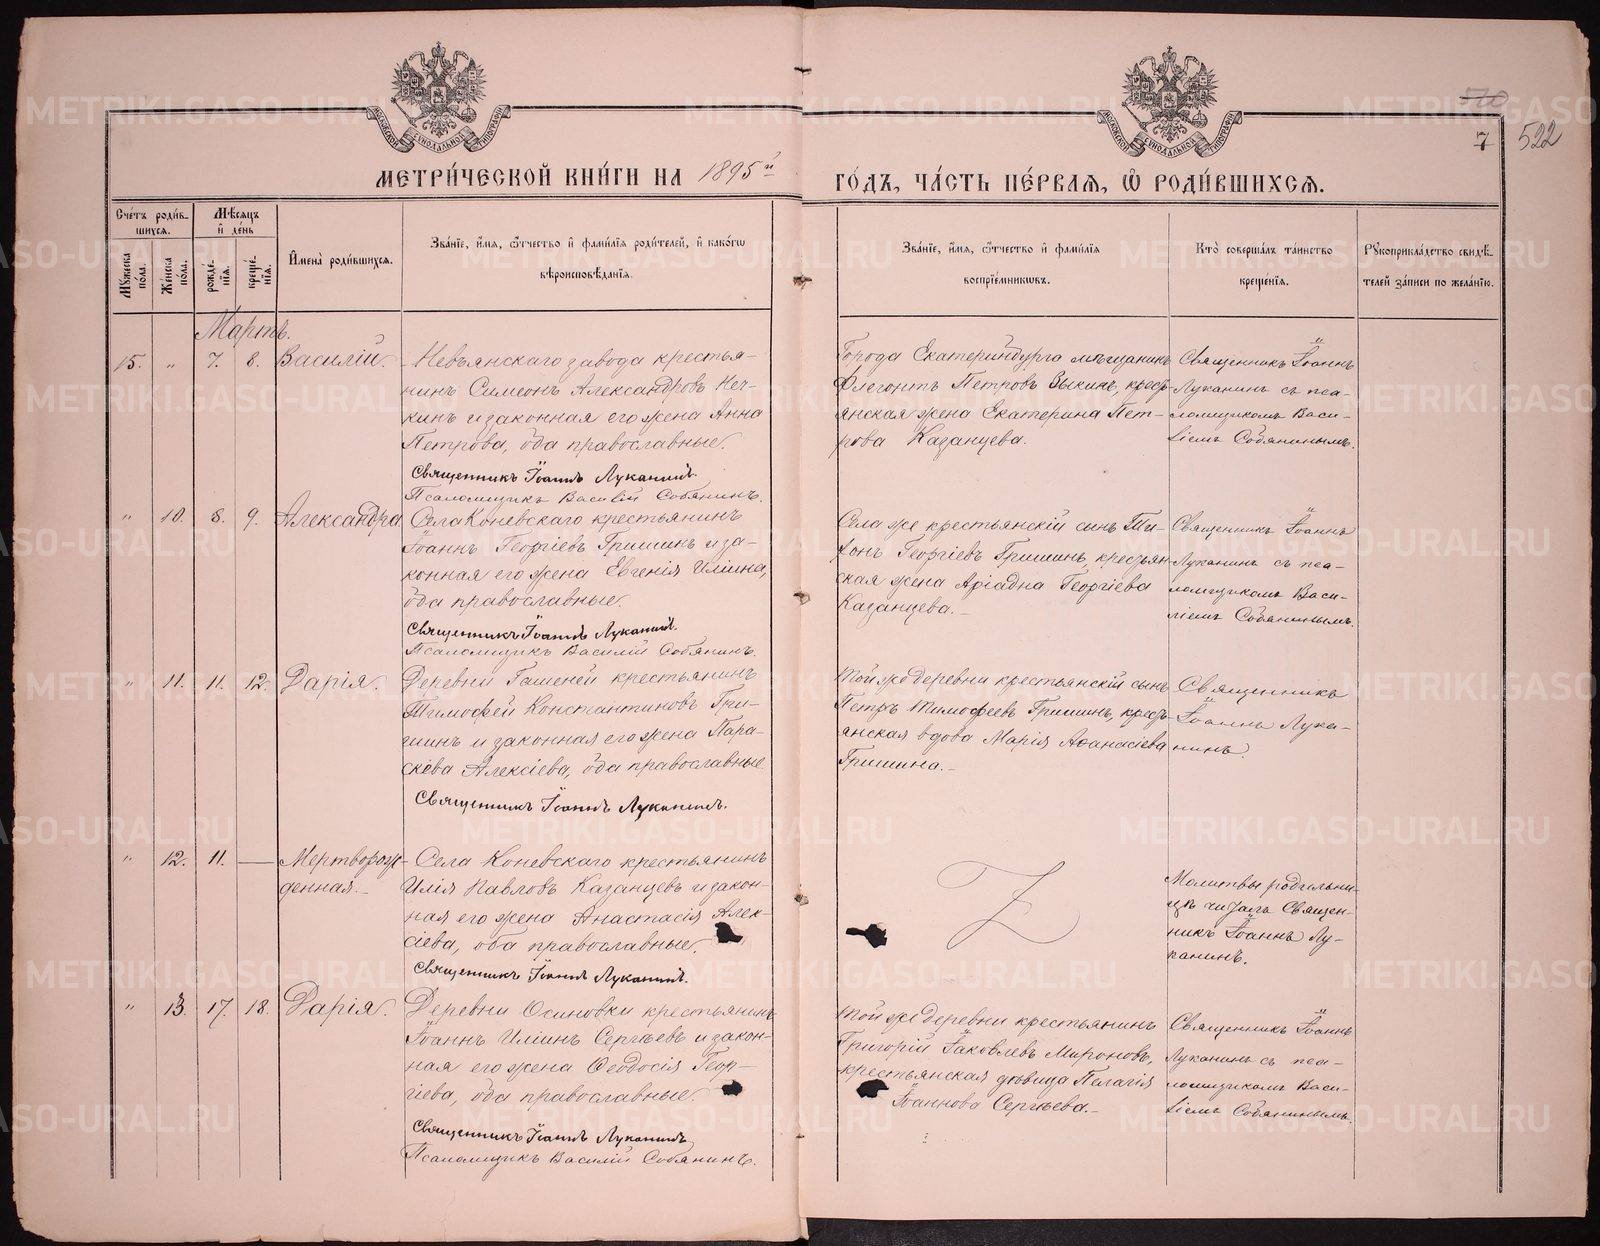 МЕТРИ́ЧЕСКОЙ КНИ́ГИ НА 1895й ГО́ДЪ, ЧА́СТЬ ПЕ́РВАЯ, Ѽ РОДИ́ВШИХСЯ.
МОСКОВСКОЙ СѴНОДАЛЬНОЙ ТИПОГРАФІИ
МОСКОВСКОЙ СѴНОДАЛЬНОЙ ТИПОГРАФІИ
570
7
522
Сче́тъ роди́в-
шихся.
Мѣ́сяцъ
и҆ де́нь
Мꙋ́жеска по́ла.
Же́нска по́ла.
рожде́-нїѧ.
креще́-нїѧ.
И҆мена̀ роди́вшихсѧ.
Зва́нїе, и҆́мѧ, ѻ҆́тчество и҆ фами́лїѧ роди́телей, и҆ како́гѡ
вѣроисповѣ́данїѧ.
Зва́нїе, и҆́мѧ, ѻ҆́тчество и҆ фами́лїѧ
воспрїе́мникѡвъ.
Кто̀ соверша́лъ та́инство
креще́нїѧ.
Рꙋкоприкла́дство свидѣ́-
телей за́писи по жела́нїю.
Мартъ.
15. " 7. 8. Василій.
Невьянскаго завода крестья-
нинъ Симеонъ Александровъ Неч-
кинъ и законная его жена Анна
Петрова, оба православные.
Священникъ Іоаннъ Луканинъ.
Псаломщикъ Василій Собянинъ.
Города Екатеринбурга мѣщанинъ
Флегонтъ Петровъ Зыкинъ, крестъ-
янская жена Екатерина Пет-
рова Казанцева.
Священникъ Іоаннъ
Луканинъ съ пса-
ломщикомъ Васи-
ліемъ Собянинымъ.
" 10. 8. 9. Александра
Села Коневскаго крестьянинъ
Іоаннъ Георгіевъ Гришинъ и за-
конная его жена Евгенія Иліина,
оба православные.
Священникъ Іоаннъ Луканинъ.
Псаломщикъ Василій Собянинъ.
Села же крестьянскій сынъ Ти-
хонъ Георгіевъ Гришинъ, крестьян-
ская жена Аріадна Георгіева
Казанцева.
Священникъ Іоаннъ
Луканинъ съ пса-
ломщикомъ Васи-
ліемъ Собянинымъ.
" 11. 11. 12. Дарія.
Деревни Гашеней крестьянинъ
Тимофей Константиновъ Гри-
шинъ и законная его жена Пара-
скева Алексіева, оба православные.
Священникъ Іоаннъ Луканинъ.
Той же деревни крестьянскій сынъ
Петръ Тимофеевъ Гришинъ, кресть-
янская вдова Марія Аѳанасіева
Гришина.
Священникъ
Іоаннъ Лука-
нинъ.
" 12. 11. — Мертворож-
денная.
Села Коневскаго крестьянинъ
Илія Павловъ Казанцевъ и закон-
ная его жена Анастасія Алек-
сіева, оба православные.
Священникъ Іоаннъ Луканинъ.
Молитвы родильни-
цѣ читалъ Священ-
никъ Іоаннъ Лу-
канинъ.
" 13. 17. 18. Дарія.
Деревни Осиновки крестьянинъ
Іоаннъ Иліинъ Сергѣевъ и закон-
ная его жена Ѳеодосія Геор-
гіева, оба православные.
Священникъ Іоаннъ Луканинъ
Псаломщикъ Василій Собянинъ.
Той же деревни крестьянинъ
Григорій Іаковлевъ Мироновъ,
крестьянская дѣвица Пелагія
Іоаннова Сергѣева.
Священникъ Іоаннъ
Луканинъ съ пса-
ломщикомъ Васи-
ліемъ Собянинымъ.
METRIKI.GASO-URAL.RU